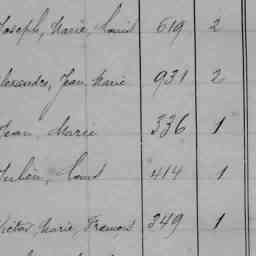 Joseph, Marie, Louis 619 2
Alexandre, Jean Marie 931 2
Jean Marie 336 1
Louis 414 1
Victor, Marie, François 349 1